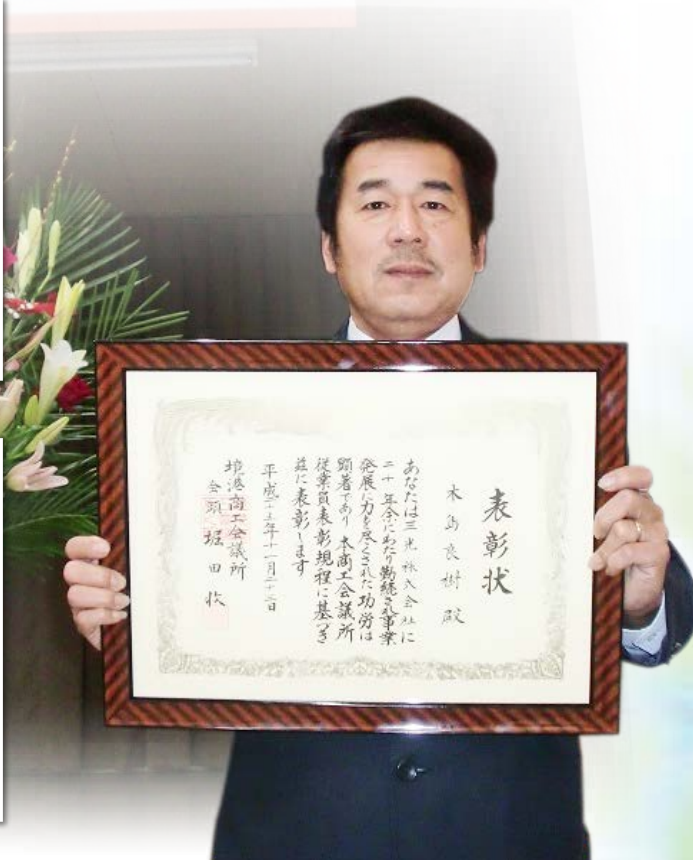 表彰状
木島良樹殿
あなたは三光株式会社に
二十年余にわたり勤続され事業
発展に力を尽くされた功労は
顕著であり本商工会議所
従業員表彰規程に基づき
茲に表彰します
平成二十三年十一月二十二日
境港商工会議所
会頭堀田收